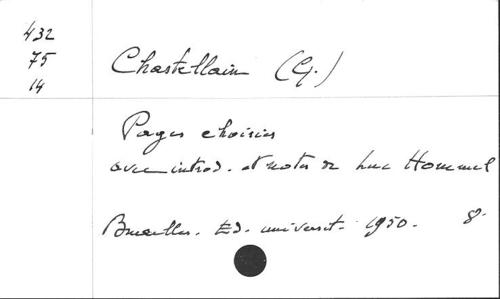 432
75
14
Chastellain (G.)
Pages choisies
avec introd. et notes de Luc Hommel
Bruxelles. Ed. universit. 1950. 8°